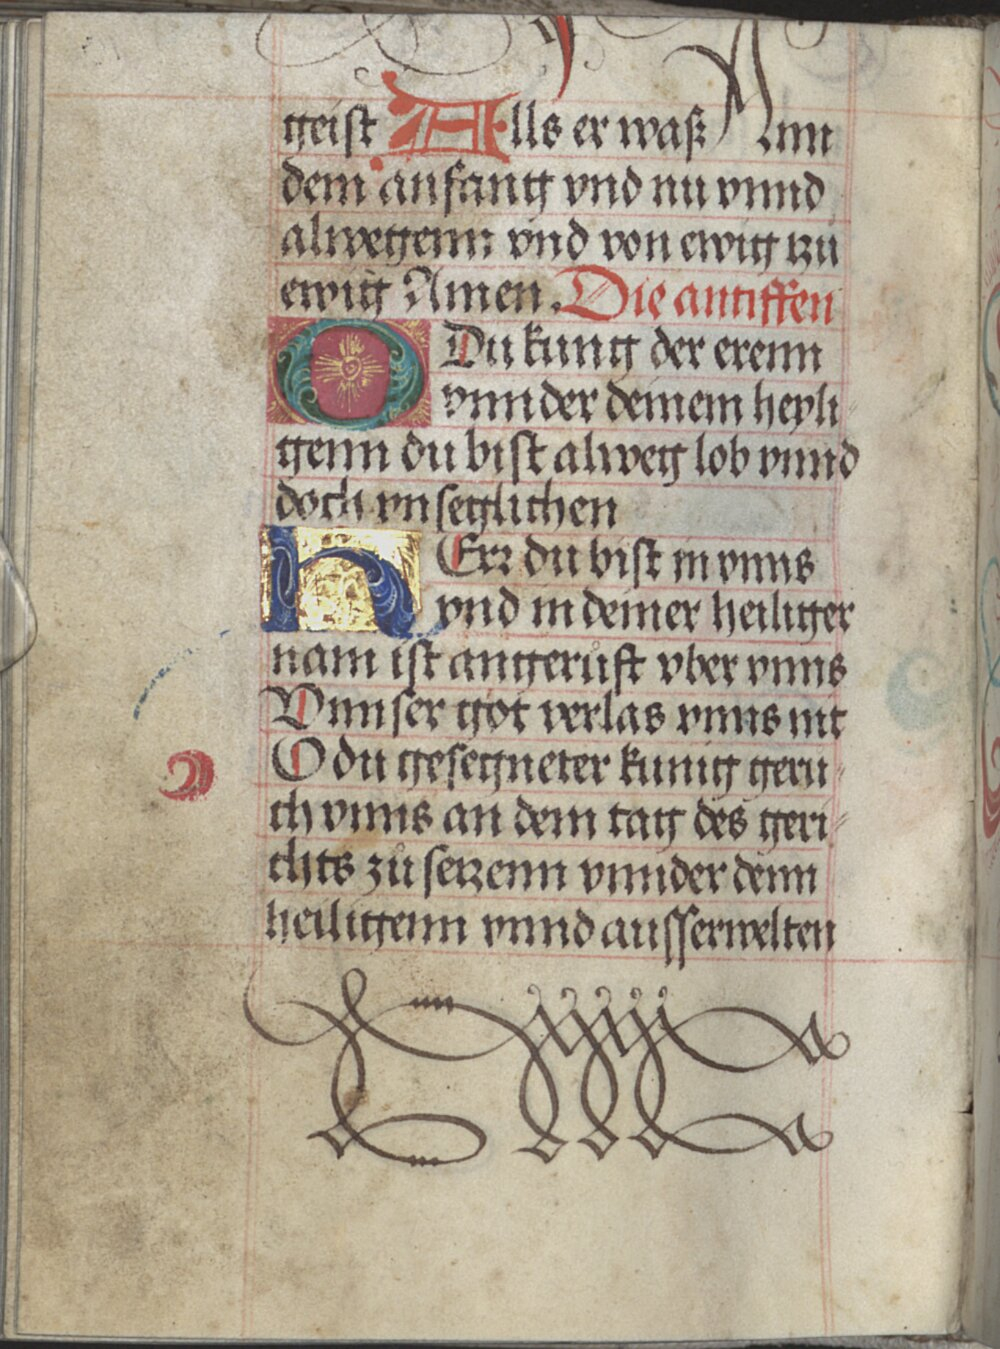 geist Alls er waß Ann
dem anfang vnd nu vnnd
alwegenn vnd von ewig tzu
ewig Amen. Die antiffen
O Du kung der erenn
vnnder deinem heyli
genn du bist alweg lob vnnd
doch vnseglichen
hErr du bist in vnns
vnd in deiner heiliger
nam ist angerůft vber vnns
Vnnser got verlas vnns nit
O du gesegneter kunig geru
ch vnns an dem tag des geri
chts zů setzenn vnnder denn
heiligenn vnnd ausserwelten